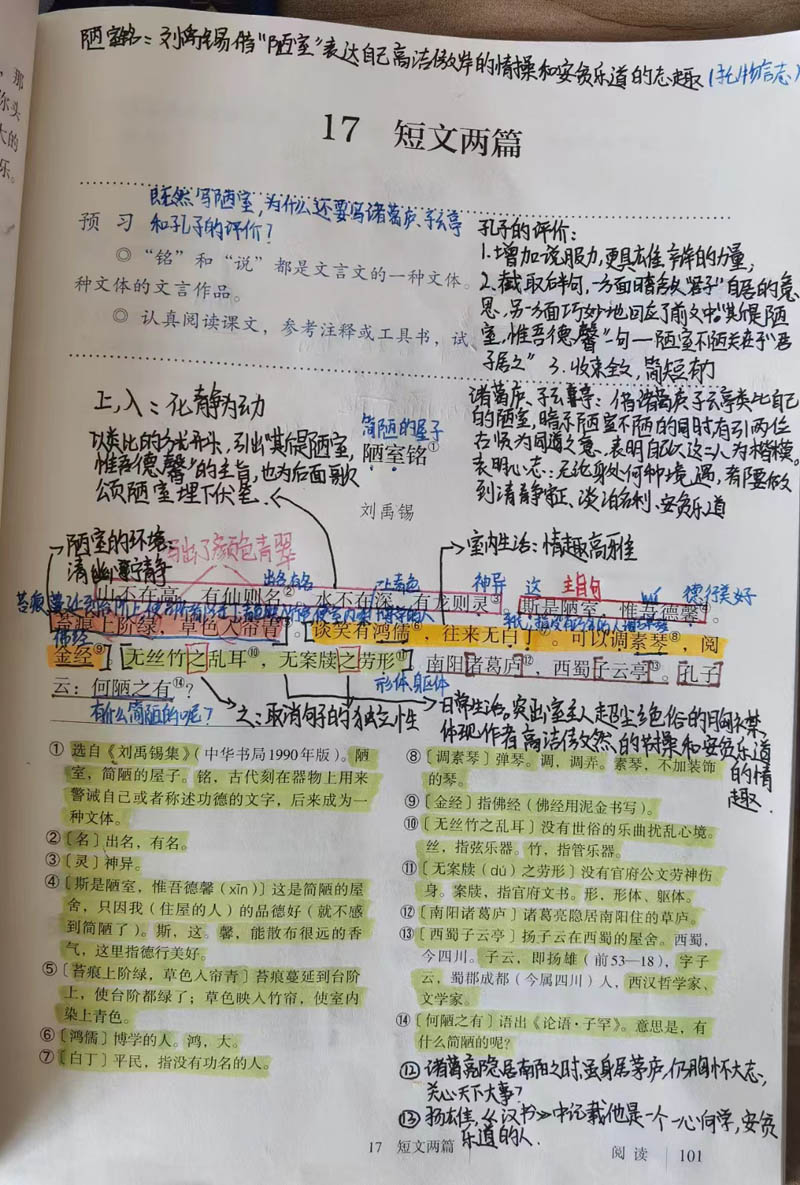 陋室铭：刘禹锡借“陋室”表达自己高洁傲岸的情操和安贫乐道的志趣（托物言志）
17 短文两篇
既然写陋室，为什么还要写诸葛庐、子云亭
和孔子的评价？
预习
◎ “铭”和“说”都是文言文的一种文体。
种文体的文言作品。
◎ 认真阅读课文，参考注释或工具书，试
孔子的评价：
1.增加说服力，更具
的力量；
2.截取后半句，一方面暗含以“君子”自居的意
思，另一方面巧妙地回应了前文中“其
陋
室，惟吾德馨”一句——陋室不陋关在于“君
子居之” 3.收束全文，简短有力
上，入：化静为动
以类比的方式开头，引出“其
陋室，
惟吾德馨”的主旨，也为后面歌
颂陋室埋下伏笔
简陋的屋子
陋室铭①
刘禹锡
诸葛庐、子云亭：借诸葛庐子云亭类比自己
的陋室，暗示陋室不陋的同时有引两位
为同道之意，表明自己以这二人为楷模。
表明心志：无论身处何种境遇，都要做
到
、淡泊名利、安贫乐道
陋室的环境：
清幽宁静
写出了颜色青翠
室内生活：情趣高雅
出名有名
神异
这
主旨句
德行美好
山不在高，有仙则名②。水不在深，有龙则灵③。斯是陋室，惟吾德馨④。
苔痕上阶绿，草色入帘青⑤。谈笑有鸿儒⑥，往来无白丁⑦。可以调素琴⑧，阅
佛经
金经⑨。无丝竹之乱耳⑩，无案牍之劳形⑪。南阳诸葛庐⑫，西蜀子云亭⑬。孔子
云：何陋之有⑭？
形体、躯体
有什么简陋的呢？
之：取消句子的独立性
日常生活：突出室主人超尘绝俗的
体现作者高洁傲
的节操和安贫乐道
的情
趣.
① 选自《刘禹锡集》（中华书局1990年版）。陋
室，简陋的屋子。铭，古代刻在器物上用来
警诫自己或者称述功德的文字，后来成为一
种文体。
②〔名〕出名，有名。
③〔灵〕神异。
④〔斯是陋室，惟吾德馨（xīn）〕这是简陋的屋
舍，只因我（住屋的人）的品德好（就不感
到简陋了）。斯，这。馨，能散布很远的香
气，这里指德行美好。
⑤〔苔痕上阶绿，草色入帘青〕苔痕蔓延到台阶
上，使台阶都绿了；草色映入竹帘，使室内
染上青色。
⑥〔鸿儒〕博学的人。鸿，大。
⑦〔白丁〕平民，指没有功名的人。
⑧〔调素琴〕弹琴。调，调弄。素琴，不加装饰
的琴。
⑨〔金经〕指佛经（佛经用泥金书写）。
⑩〔无丝竹之乱耳〕没有世俗的乐曲扰乱心境。
丝，指弦乐器。竹，指管乐器。
⑪〔无案牍（dú）之劳形〕没有官府公文劳神伤
身。案牍，指官府文书。形，形体、躯体。
⑫〔南阳诸葛庐〕诸葛亮隐居南阳住的草庐。
⑬〔西蜀子云亭〕扬子云在西蜀的屋舍。西蜀，
今四川。子云，即扬雄（前53—18），字子
云，蜀郡成都（今属四川）人，西汉哲学家、
文学家。
⑭〔何陋之有〕语出《论语·子罕》。意思是，有
什么简陋的呢？
⑫ 诸葛亮隐居南阳之时，虽身居茅庐，仍胸怀大志，
关心天下大事？
⑬
《汉书》中记载他是一个一心向学，安贫
乐道的人.
17 短文两篇
阅读
101
那
你头
大的
乐。